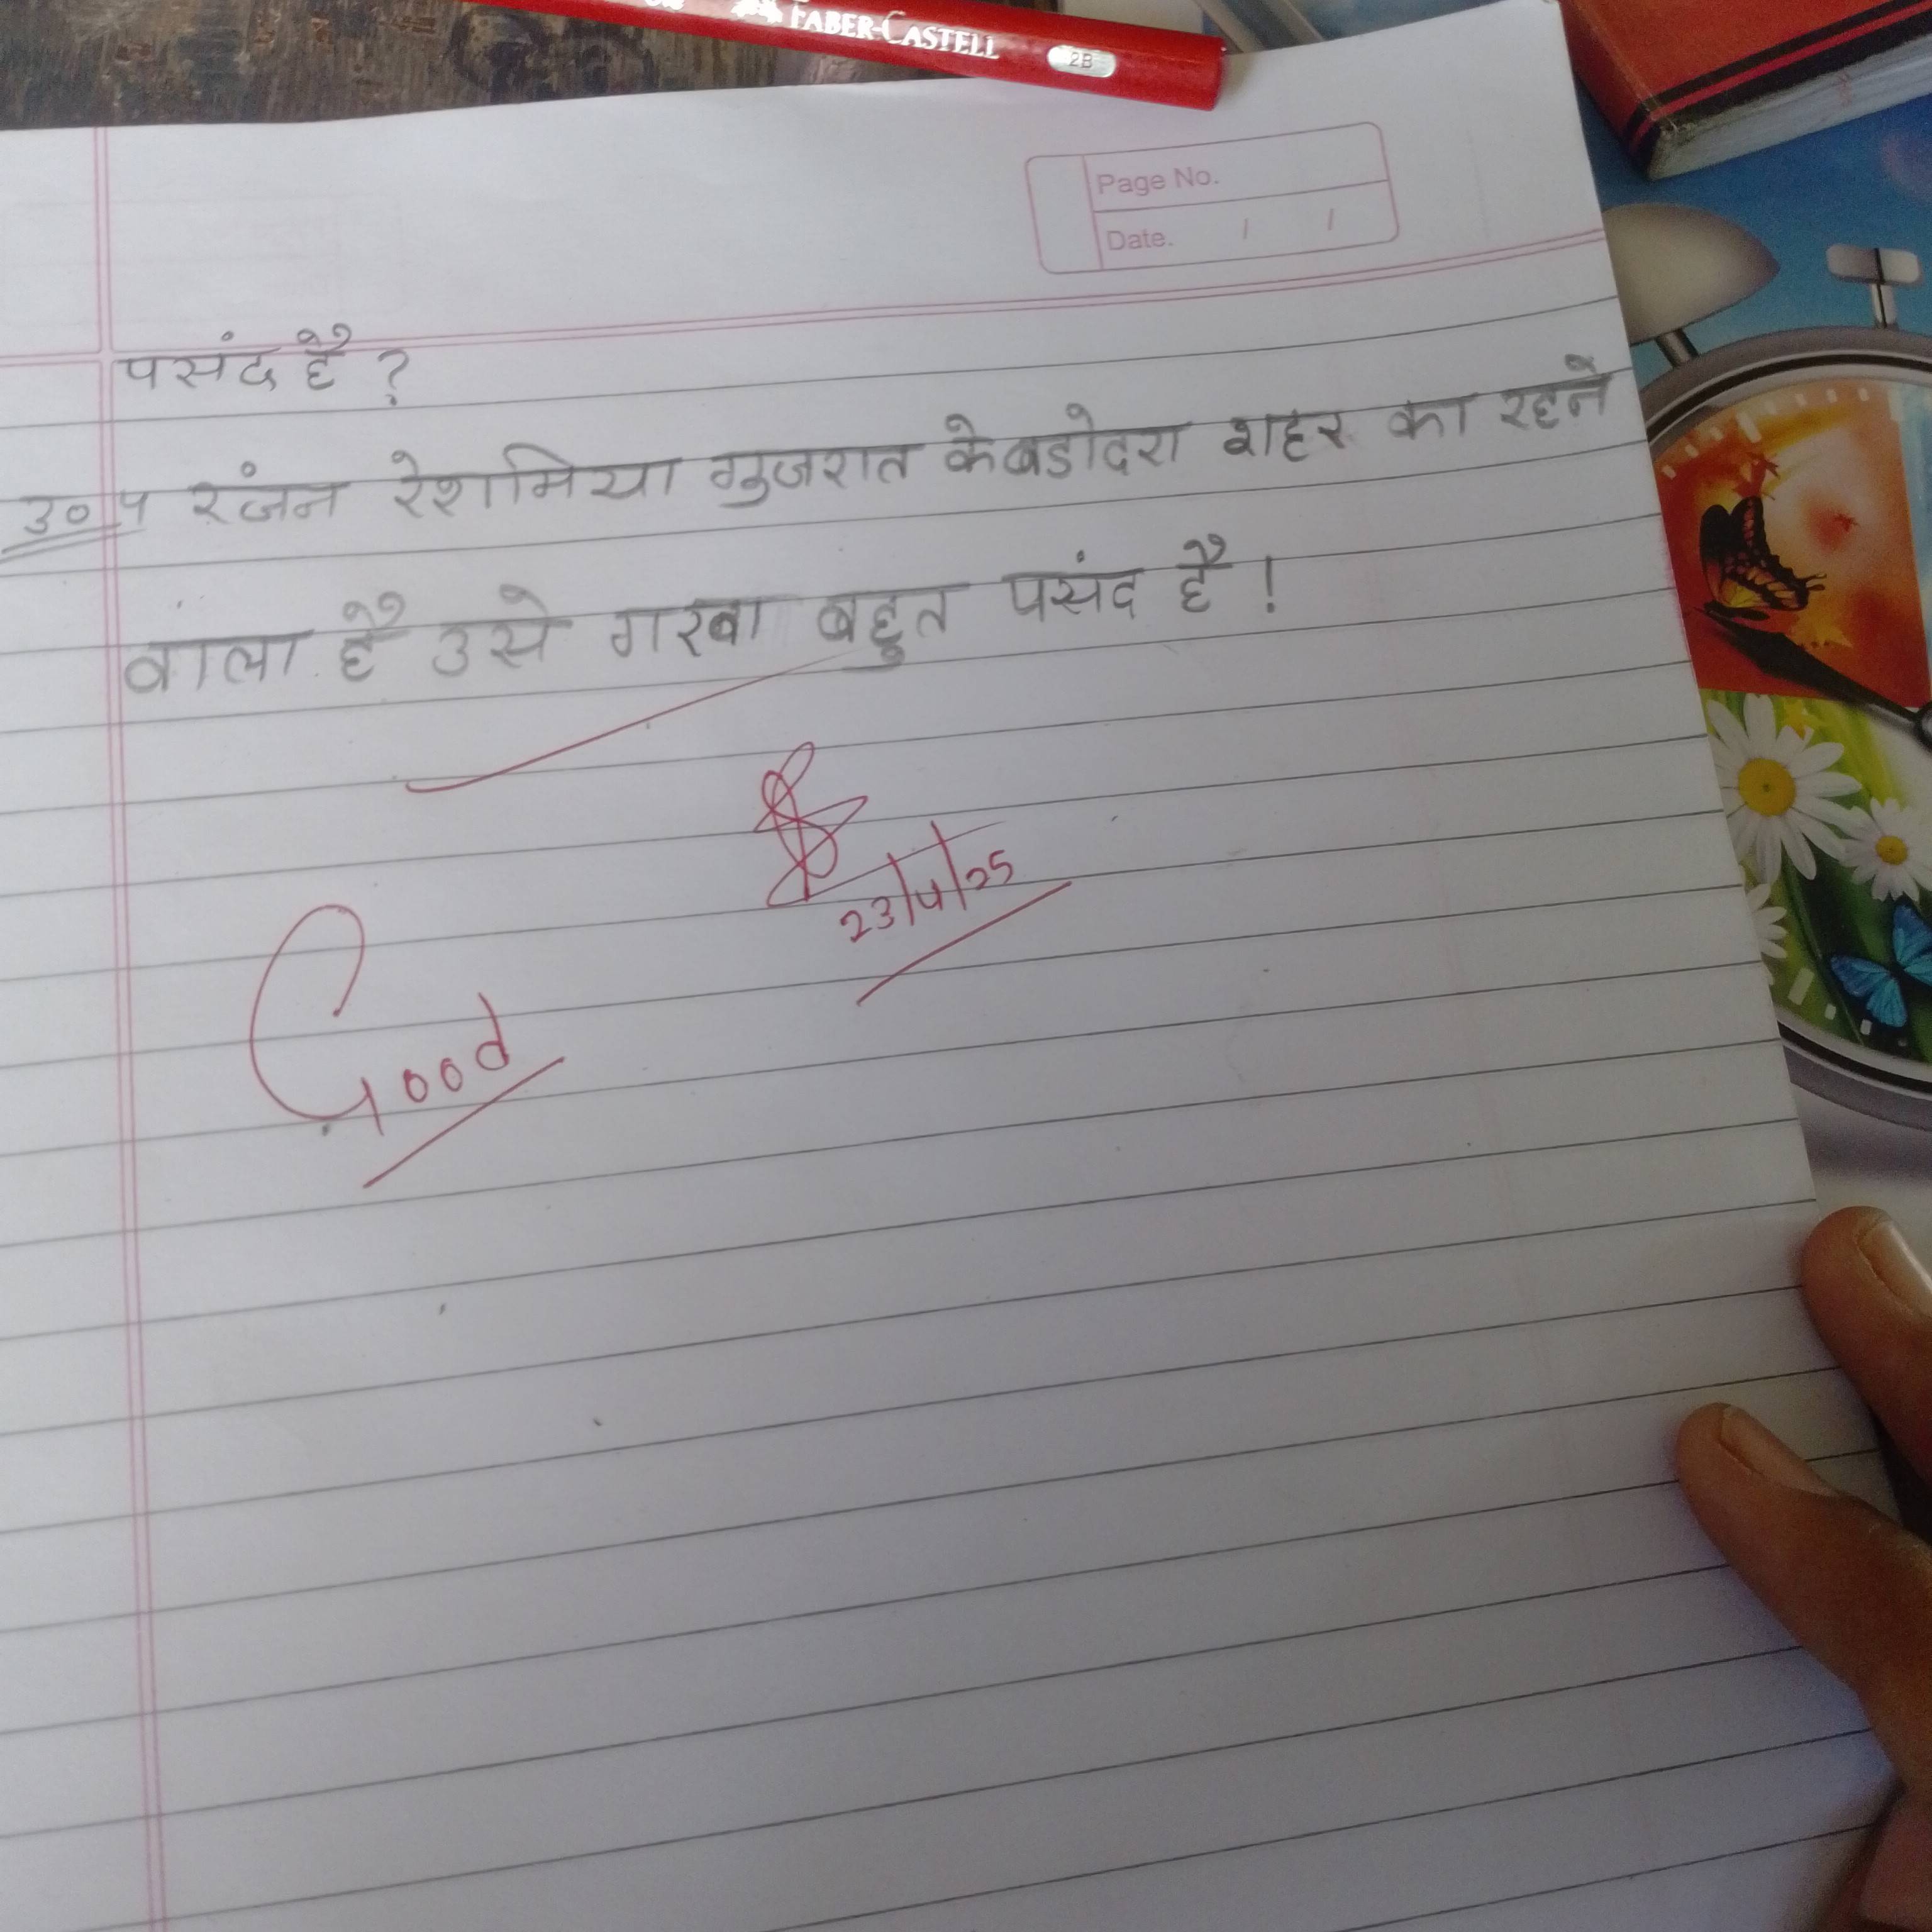 FABER-CASTELL 2B
Page No.
Date. / /
पसंद है ?
उ०५ रंजन रेशमिया गुजरात के बडोदरा शहर का रहने
वाला है उसे गरबा बहुत पसंद है !
23/4/25
Good